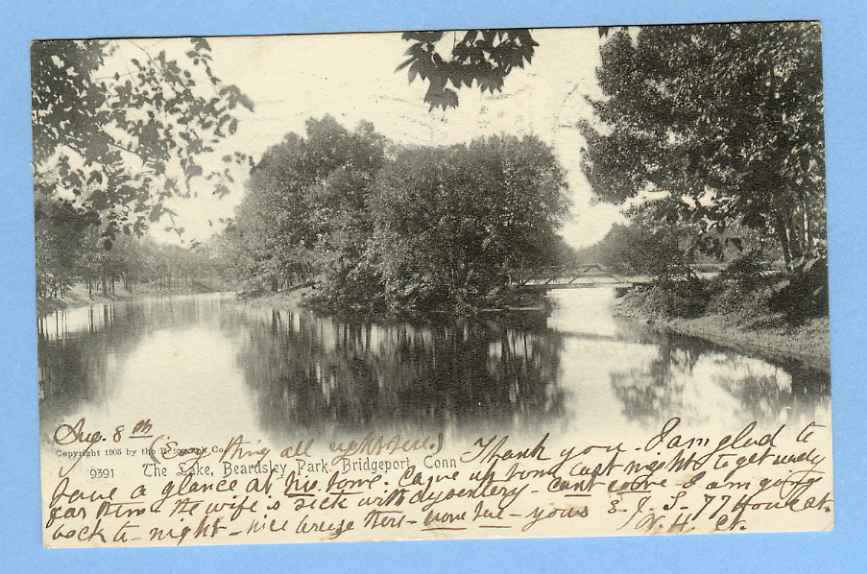 Aug. 8th
(Everything all right here.)
Copyright 1905 by the Rotograph Co.
9391 The Lake, Beardsley Park, Bridgeport, Conn
Thank you - I am glad to
have a glance at his home. Came up home last night to get ready
for them. The wife is sick with dysentery - can't come - I am going
back to-night - will write then - yours E. J. S - 77 Howe st.
N. H. Ct.